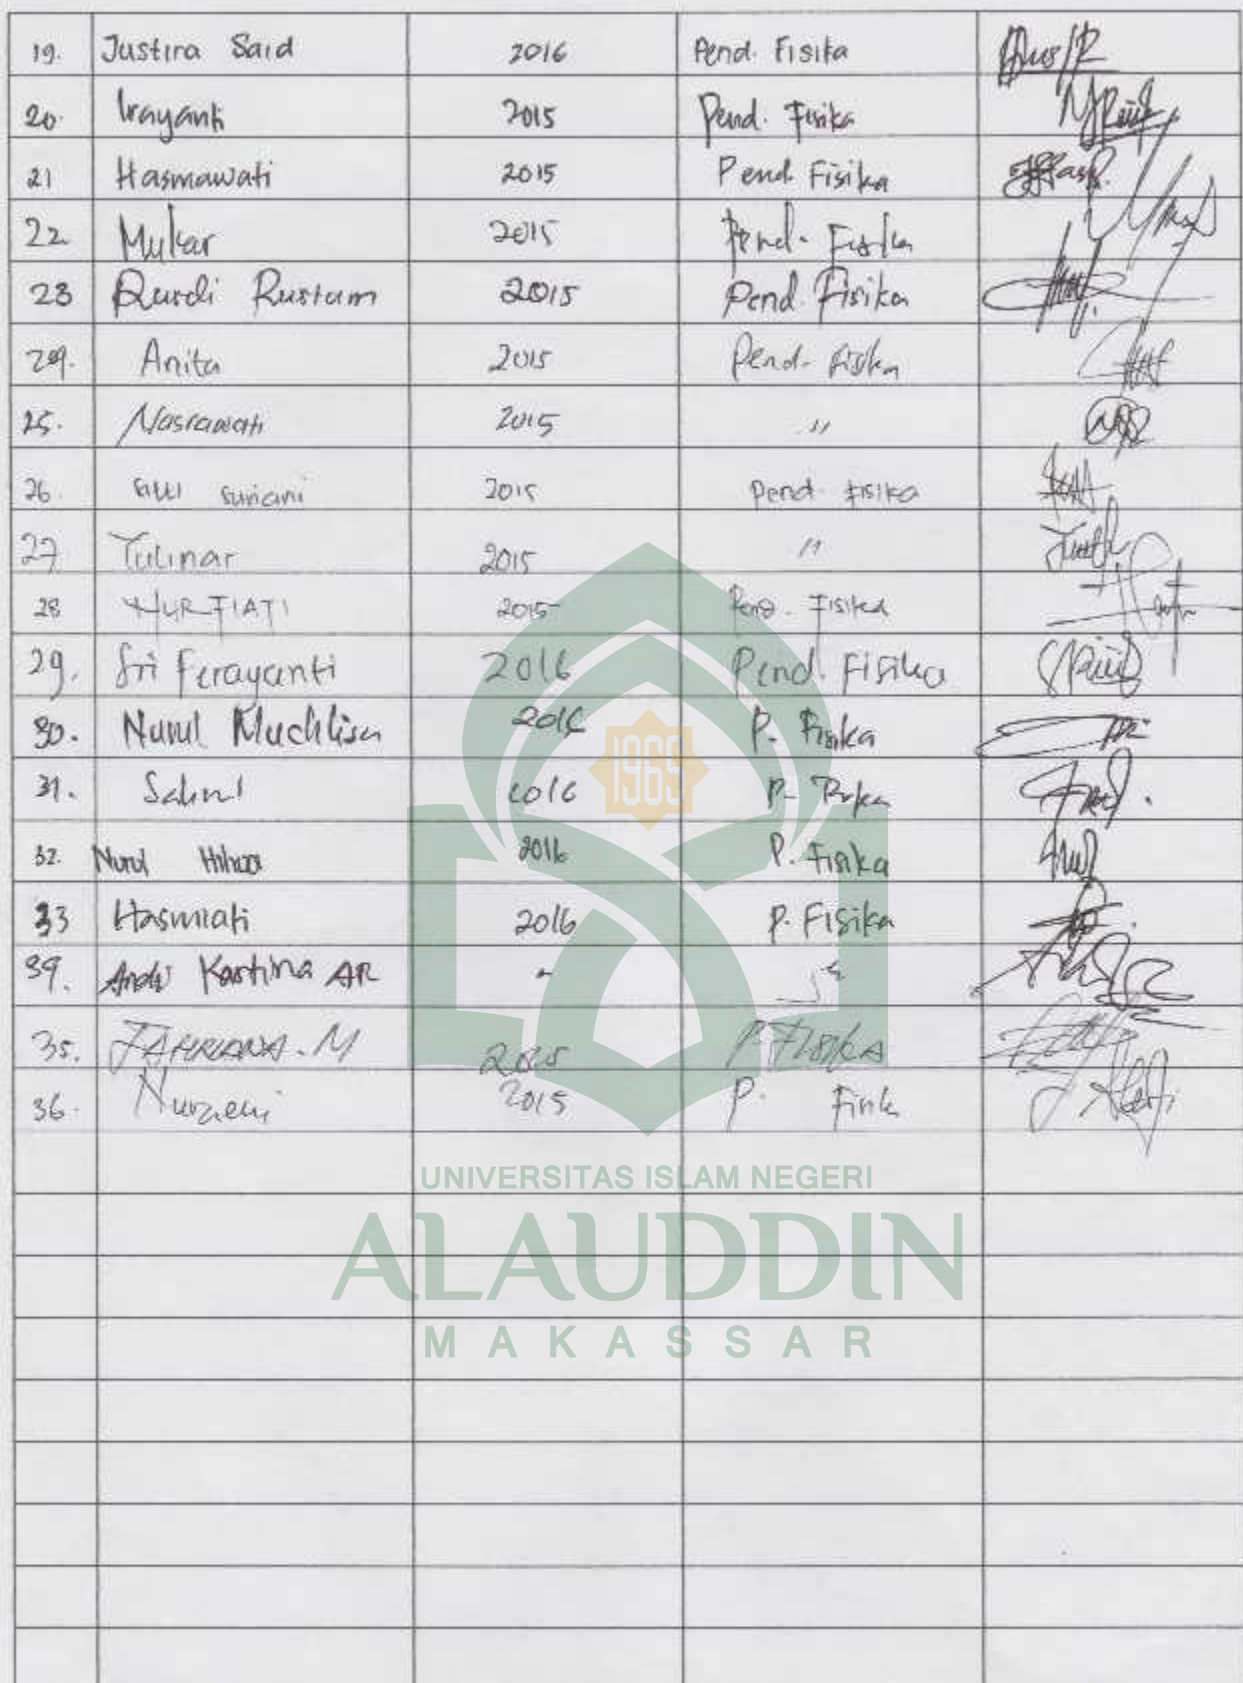 19. Justira Said 2016 Pend. Fisika
20. Irayanti 2015 Pend. Fisika
21 Hasmawati 2015 Pend Fisika
22 Mukar 2015 Pend. Fisika
23 Rusdi Rustam 2015 Pend. Fisika
24. Anita 2015 Pend. Fisika
25. Nasrawati 2015 "
26. Sitti Suriani 2015 Pend. Fisika
27. Yulinar 2015 "
28 NURFIATI 2015 Pend. Fisika
29. Sri Ferayanti 2016 Pend. Fisika
30. Nurul Muchlisa 2016 P. Fisika
31. 2016 P.
32. Nurul 2016 P. Fisika
33 Hasmiati 2016 P. Fisika
34. Andi Kartina AR -
35. FAHRIANA. M 2015 P. FISIKA
36. Nuraeni 2015 P. Fisik
1965
UNIVERSITAS ISLAM NEGERI
ALAUDDIN
MAKASSAR